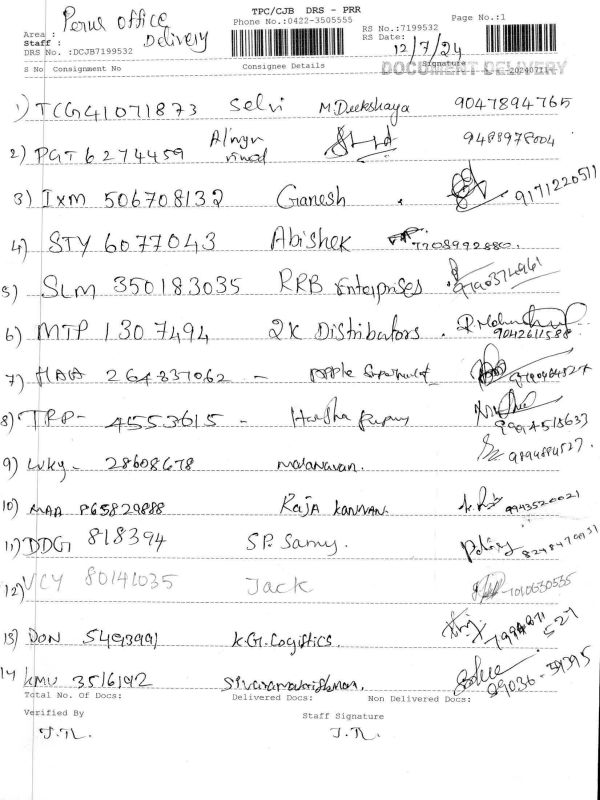 TPC/CJB DRS - PRR
Page No.:1
Phone No.:0422-3505555
RS No.:7199532
Area : office
RS Date: 12/7/24
Staff : Delivery
DRS No. :DCJB7199532
Signature
DOCUMENT DELIVERY
S No Consignment No Consignee Details -20240711-
1) TCG41071873 Selvi M.Deekshaya 9047894765
2) PGT 6274459 vinod 9488978004
3) Ixm 506708132 Ganesh 9171220511
4) STY 6077043 Abishek 7708992880.
5) SLM 350183035 RRB Enterprises
6) MTP 1307494 2K Distributors 9042611588
7) 264837062 - Apple
8) TRP- 4553615 - 9994518633
9) 28608678
10) MAA P65829888 Raja Kannan. 9943520021
11) DDG 818394 S.P. Samy.
12) VCY 80141035 Jack
13) DON 5493991 K.G.Logistics.
14 KMU 3516192 Sivaramakrishnan. 99036-59395
Total No. Of Docs: Delivered Docs: Non Delivered Docs:
Verified By Staff Signature